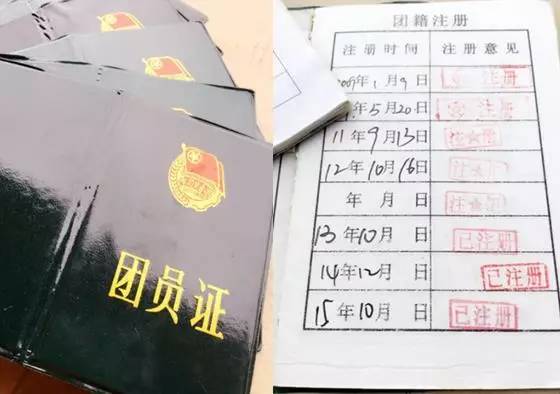 团员证
团籍注册
注册时间 注册意见
2009年1月9日 注册
年5月20日 注册
11年9月13日 注册
12年10月16日 注册
年 月 日 注册
13年10月 日 已注册
14年12月 日 已注册
15年10月 日 已注册